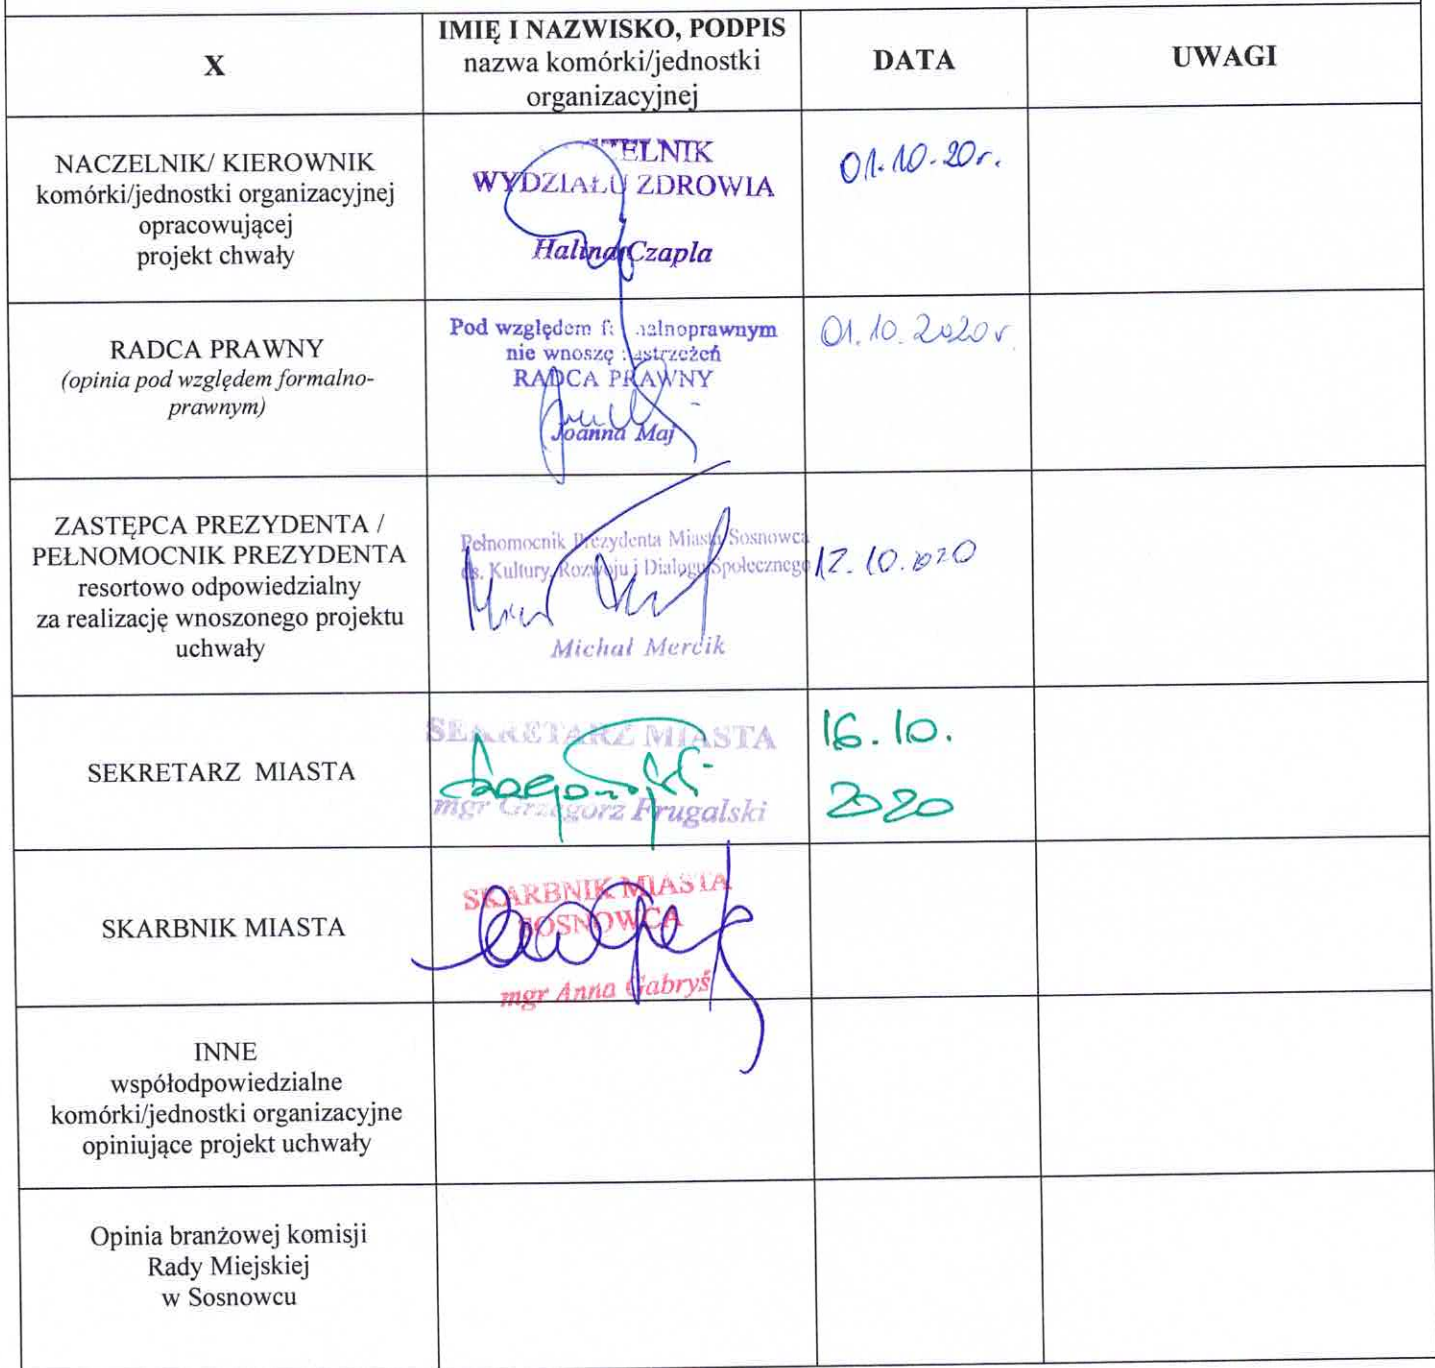 X
IMIĘ I NAZWISKO, PODPIS
nazwa komórki/jednostki
organizacyjnej
DATA
UWAGI
NACZELNIK/ KIEROWNIK
komórki/jednostki organizacyjnej
opracowującej
projekt chwały
WYDZIAŁU ZDROWIA
Halina Czapla
01.10.20r.
RADCA PRAWNY
(opinia pod względem formalno-
prawnym)
Pod względem formalnoprawnym
nie wnoszę zastrzeżeń
RADCA PRAWNY
Joanna Maj
01.10.2020r.
ZASTĘPCA PREZYDENTA /
PEŁNOMOCNIK PREZYDENTA
resortowo odpowiedzialny
za realizację wnoszonego projektu
uchwały
Pełnomocnik Prezydenta Miasta Sosnowca
ds. Kultury, Rozwoju i Dialogu Społecznego
Michał Mercik
12.10.2020
SEKRETARZ MIASTA
SEKRETARZ MIASTA
mgr Grzegorz Frugalski
16.10.
2020
SKARBNIK MIASTA
SKARBNIK MIASTA
SOSNOWCA
mgr Anna Gabryś
INNE
współodpowiedzialne
komórki/jednostki organizacyjne
opiniujące projekt uchwały
Opinia branżowej komisji
Rady Miejskiej
w Sosnowcu